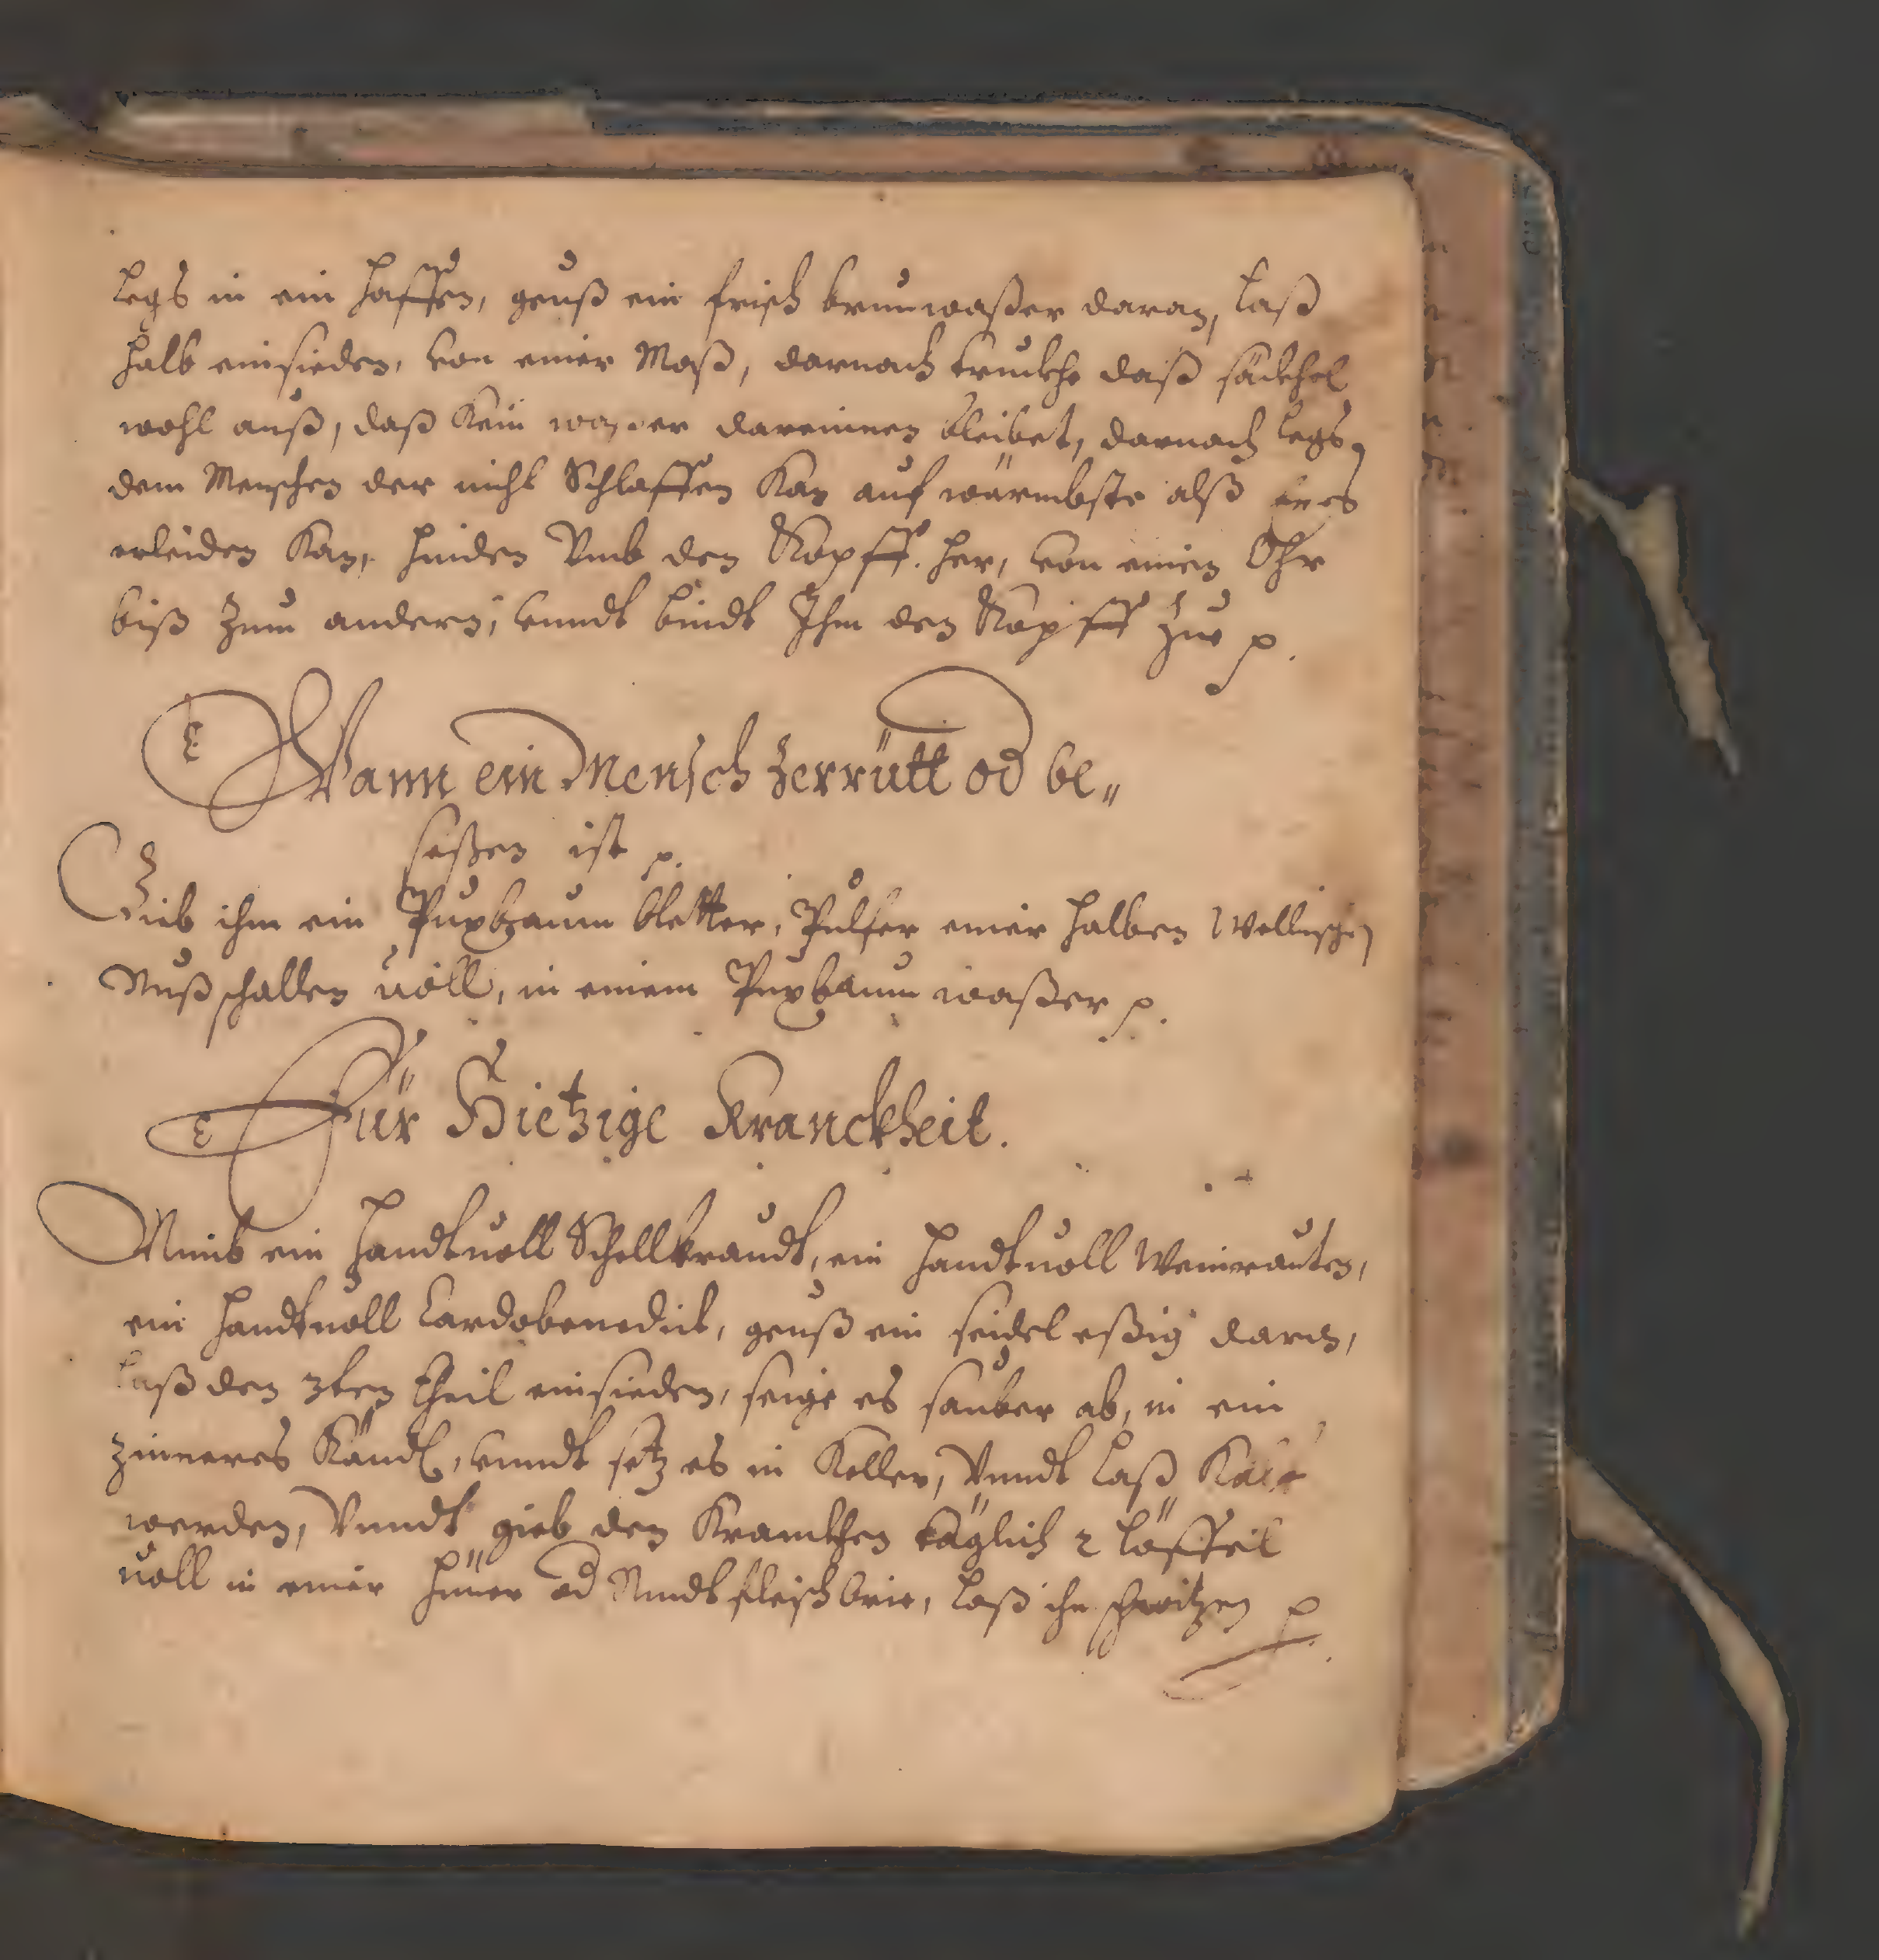 legs in ein haffen, geuß ein frisch brunwaßer daran, laß
halb einsieden, von einer Maß, darnach truckhe daß säckhel
wohl auß, daß kein waßer dareinnen bleibet, darnach legs
dem Menschen der nicht Schlaffen kan auf wärmbste alß er es
erleiden kan, hinden Vmb den Kopff her, von einen Ohr
biß zum andern, vnndt bindt Ihm den Kopff zue p.
Wann ein Mensch zerrütt od be„
seßen ist p.
Gieb ihm ein Puxbaum bletter, Pulfer einer halben Wellischen
Nußschallen voll, in einem Puxbaum waßer p.
Für Hietzige Kranckheit.
Nimb ein handtvoll Schellkraudt, ein handtvoll Weinrauten,
ein handtvoll Cardobenedict, geuß ein seidel eßig daran,
laß den 3ten theil einsieden, seige es sauber ab, in ein
zinneres Kändl, vnndt setz es in Keller, Vnndt laß Kalt
werden, Vnndt gieb den Kranckhen täglich 2 löffel
voll in einer hüner od Rindtfleischbrie, laß ihn schwitzen p.